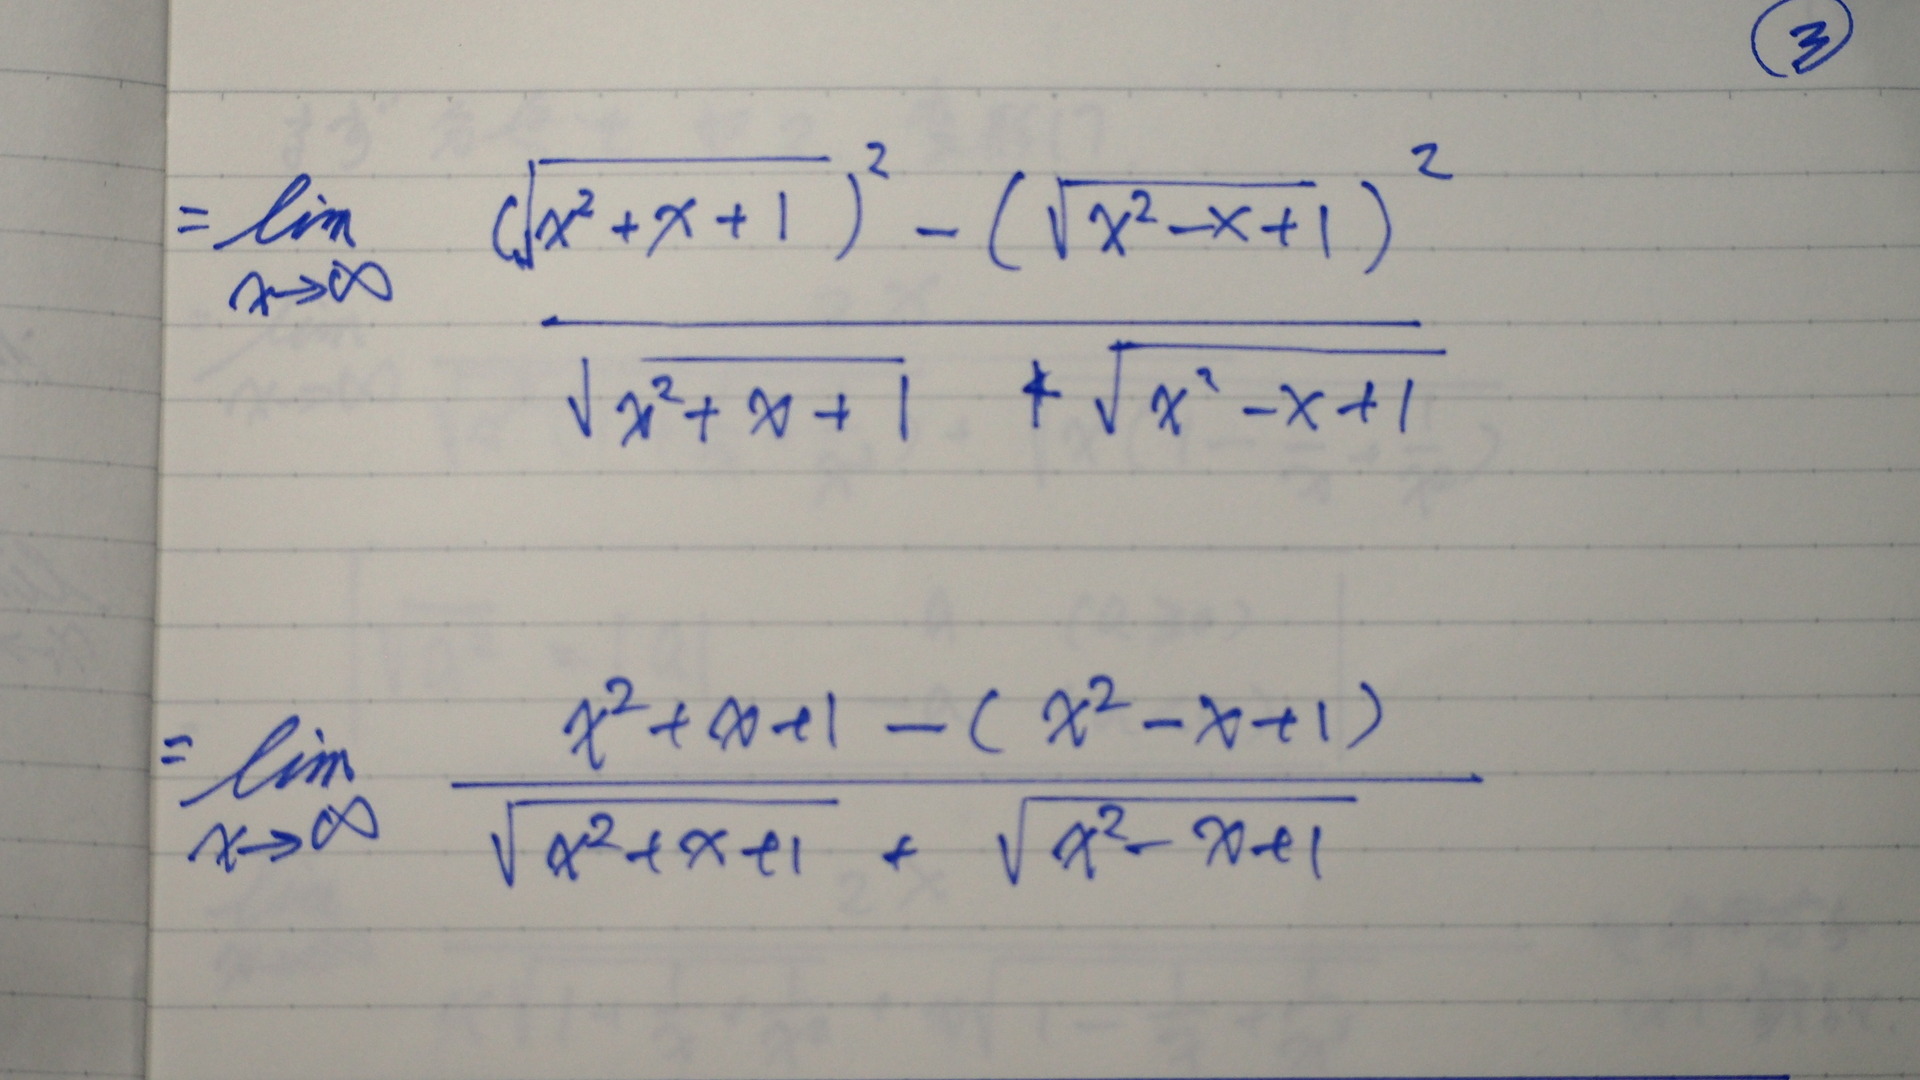 ③
= lim x→∞ ((√(x² + x + 1))² − (√(x² − x + 1))²) / (√(x² + x + 1) + √(x² − x + 1))
= lim x→∞ (x² + x + 1 − (x² − x + 1)) / (√(x² + x + 1) + √(x² − x + 1))